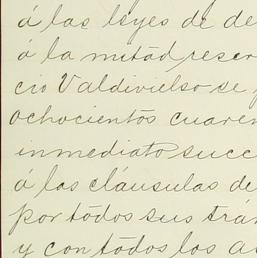 á las leyes de de
á la mitad reser
cio Valdivielso se
ochocientos cuaren
inmediato succ
á las cláusulas de
por todos sus trá
y con todos los as